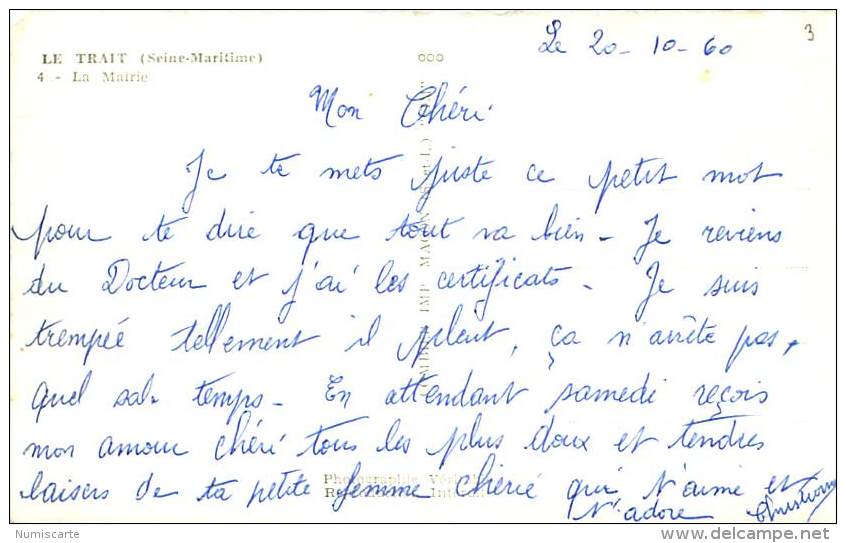 Le 20-10-60
3
LE TRAIT (Seine-Maritime)
4 - La Mairie
Mon Chéri
Je te mets juste ce petit mot
pour te dire que tout va bien - Je reviens
du Docteur et j'ai les certificats - Je suis
trempée tellement il pleut, ça n'arrête pas,
quel sale temps - En attendant samedi reçois
mon amour chéri tous les plus doux et tendres
baisers de ta petite femme chérie qui t'aime et
t'adore
IMP MACON
Photographie
Numiscarte
www.delcampe.net